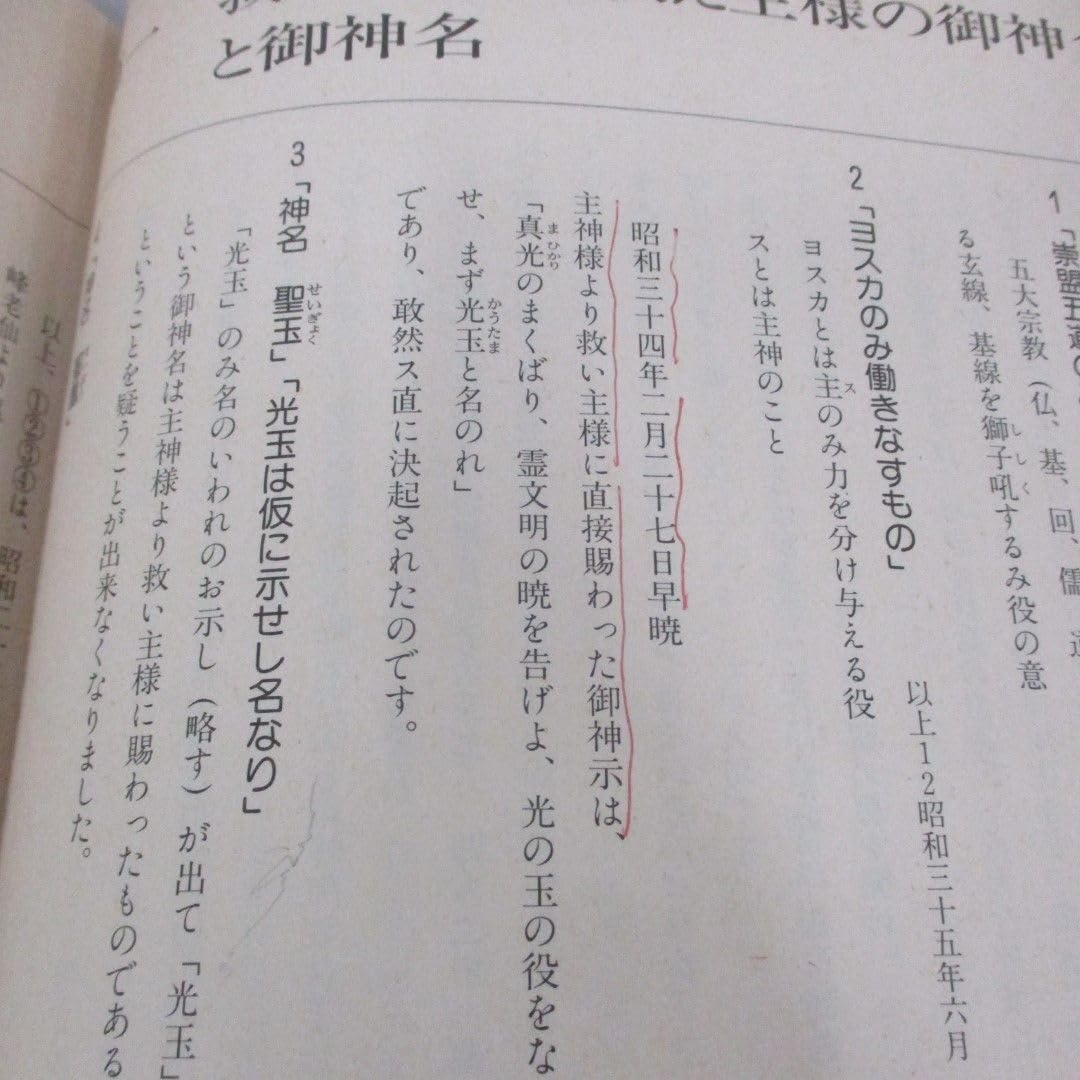 様の御神
と御神名
1「崇盟五道の
五大宗教（仏、基、回、儒、
る玄線、基線を獅子吼するみ役の意
以上12昭和三十五年六月
2「ヨスカのみ働きなすもの」
ヨスカとは主のみ力を分け与える役
スとは主神のこと
昭和三十四年二月二十七日早暁
主神様より救い主様に直接賜わった御神示は、
「真光のまくばり、霊文明の暁を告げよ、光の玉の役をな
せ、まず光玉と名のれ」
であり、敢然ス直に決起されたのです。
3「神名　聖玉」「光玉は仮に示せし名なり」
「光玉」のみ名のいわれのお示し（略す）が出て「光玉」
という御神名は主神様より救い主様に賜わったものである
ということを疑うことが出来なくなりました。
以上、①②③④は、昭和
峰老仙より